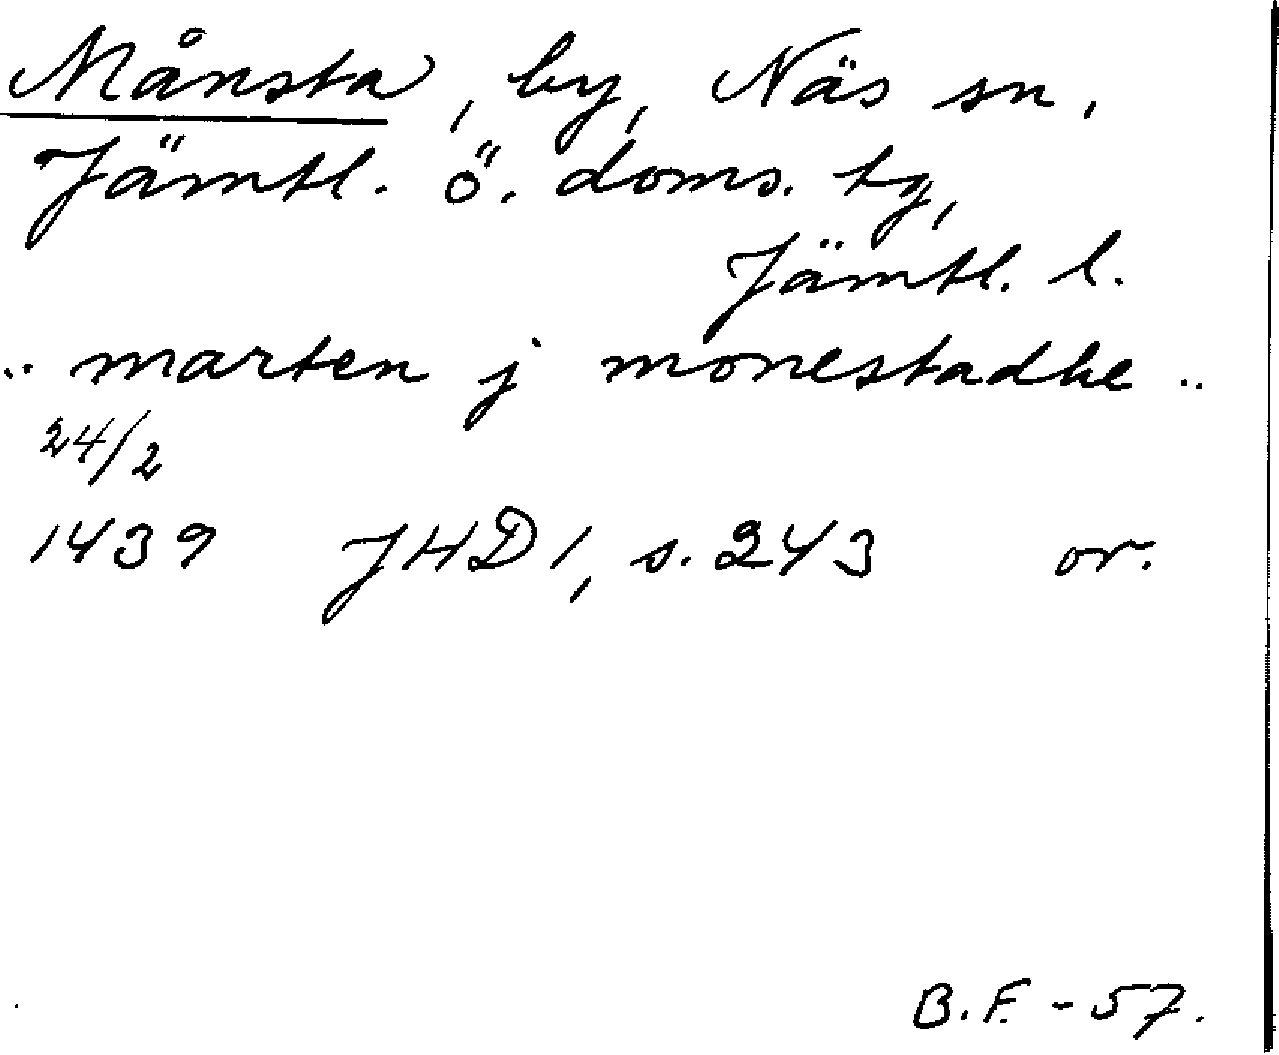 Månsta, by, Näs sn,
Jämtl. ö. doms. tg,
Jämtl. l.
.. marten j monestadhe ..
24/2
1439 JHD 1, s. 243 or.
B.F. - 57.